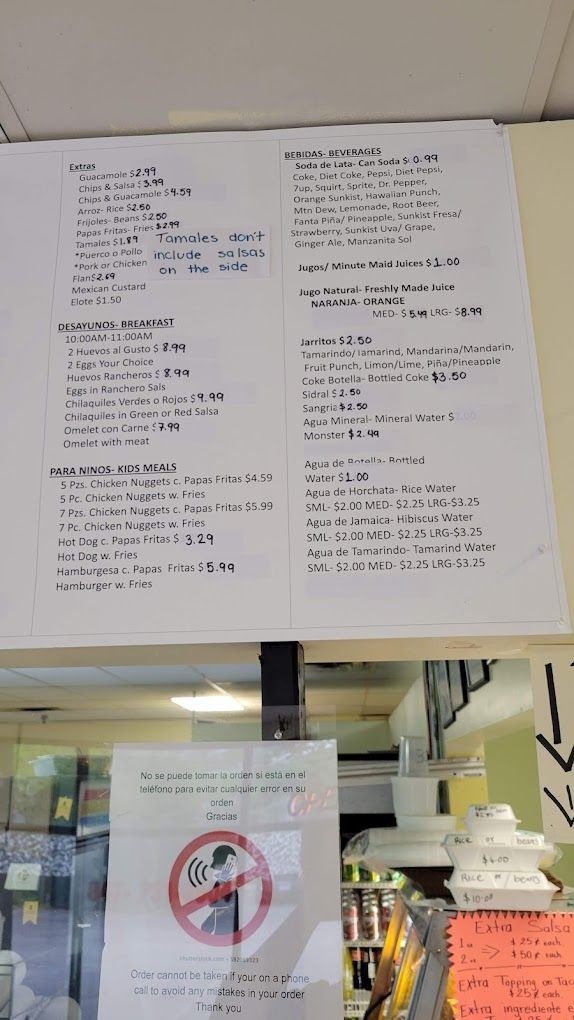 Extras
Guacamole $2.99
Chips & Salsa $3.99
Chips & Guacamole $4.59
Arroz- Rice $2.50
Frijoles- Beans $2.50
Papas Fritas- Fries $2.99
Tamales $1.89
*Puerco o Pollo
*Pork or Chicken
Flan $2.69
Mexican Custard
Elote $1.50
Tamales don't
include salsas
on the side
DESAYUNOS- BREAKFAST
10:00AM-11:00AM
2 Huevos al Gusto $8.99
2 Eggs Your Choice
Huevos Rancheros $8.99
Eggs in Ranchero Sals
Chilaquiles Verdes o Rojos $9.99
Chilaquiles in Green or Red Salsa
Omelet con Carne $7.99
Omelet with meat
PARA NINOS- KIDS MEALS
5 Pzs. Chicken Nuggets c. Papas Fritas $4.59
5 Pc. Chicken Nuggets w. Fries
7 Pzs. Chicken Nuggets c. Papas Fritas $5.99
7 Pc. Chicken Nuggets w. Fries
Hot Dog c. Papas Fritas $ 3.29
Hot Dog w. Fries
Hamburgesa c. Papas Fritas $5.99
Hamburger w. Fries
BEBIDAS- BEVERAGES
Soda de Lata- Can Soda $0.99
Coke, Diet Coke, Pepsi, Diet Pepsi,
7up, Squirt, Sprite, Dr. Pepper,
Orange Sunkist, Hawaiian Punch,
Mtn Dew, Lemonade, Root Beer,
Fanta Piña/ Pineapple, Sunkist Fresa/
Strawberry, Sunkist Uva/ Grape,
Ginger Ale, Manzanita Sol
Jugos/ Minute Maid Juices $1.00
Jugo Natural- Freshly Made Juice
NARANJA- ORANGE
MED- $5.49 LRG- $8.99
Jarritos $2.50
Tamarindo/Tamarind, Mandarina/Mandarin,
Fruit Punch, Limon/Lime, Piña/Pineapple
Coke Botella- Bottled Coke $3.50
Sidral $2.50
Sangria $2.50
Agua Mineral- Mineral Water $2.00
Monster $2.49
Agua de Botella- Bottled
Water $1.00
Agua de Horchata- Rice Water
SML- $2.00 MED- $2.25 LRG-$3.25
Agua de Jamaica- Hibiscus Water
SML- $2.00 MED- $2.25 LRG-$3.25
Agua de Tamarindo- Tamarind Water
SML- $2.00 MED- $2.25 LRG-$3.25
No se puede tomar la orden si está en el
teléfono para evitar cualquier error en su
orden
Gracias
shutterstock.com
Order cannot be taken if your on a phone
call to avoid any mistakes in your order
Thank you
Rice or beans
$6.00
Rice or beans
$10.00
Extra Salsa
$25¢ each
$50¢ each
Extra Topping on Tac
$25¢ each.
Extra ingrediente e